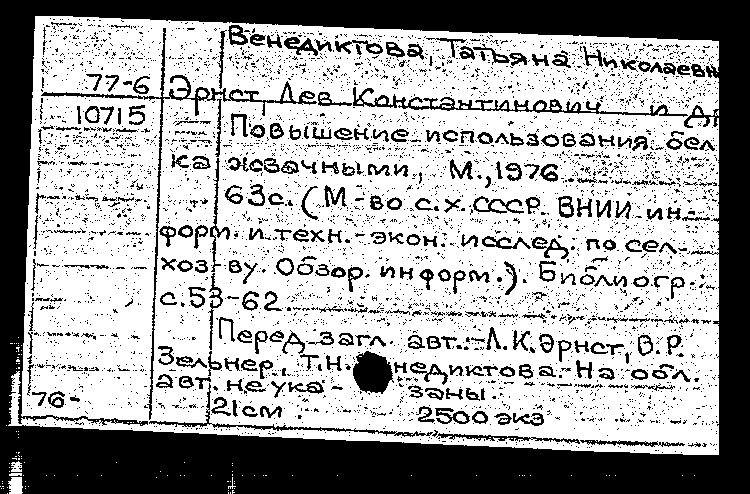 Венедиктова, Татьяна Николаевн
77-6 Эрнст, Лев Константинович и др
10715
Повышение использования бел
ка жвачными, М., 1976
63с. (М-во с.х. СССР. ВНИИ ин-
форм. и техн.-экон. исслед. по сел-
хоз-ву. Обзор. информ.). Библиогр.:
с.53-62.
Перед загл. авт.: Л.К.Эрнст, В.Р.
Зельнер, Т.Н. недиктова. На обл.
авт. не ука- заны.
76- 21см. 2500 экз